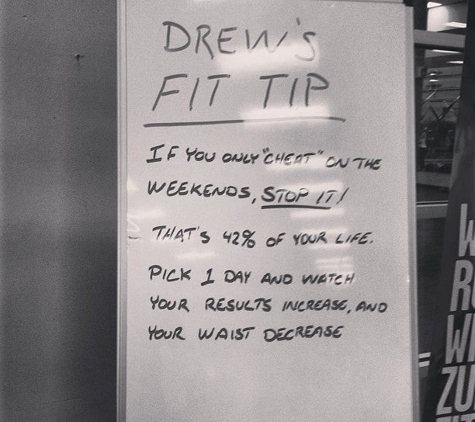 DREW'S
FIT TIP
IF YOU ONLY "CHEAT" ON THE
WEEKENDS, STOP IT!
THAT'S 42% OF YOUR LIFE.
PICK 1 DAY AND WATCH
YOUR RESULTS INCREASE, AND
YOUR WAIST DECREASE
W
R
W
ZU